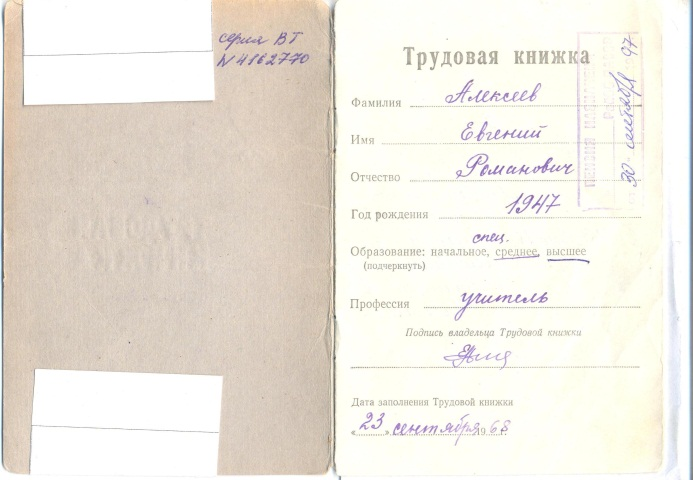 серия ВТ
№ 4162770
Трудовая книжка
Фамилия Алексеев
Имя Евгений
Отчество Романович
Год рождения 1947
спец.
Образование: начальное, среднее, высшее
(подчеркнуть)
Профессия учитель
Подпись владельца Трудовой книжки
Дата заполнения Трудовой книжки
„23„ сентября 1968
ПЕНСИЯ НАЗНАЧЕНА
30 сентября 1997